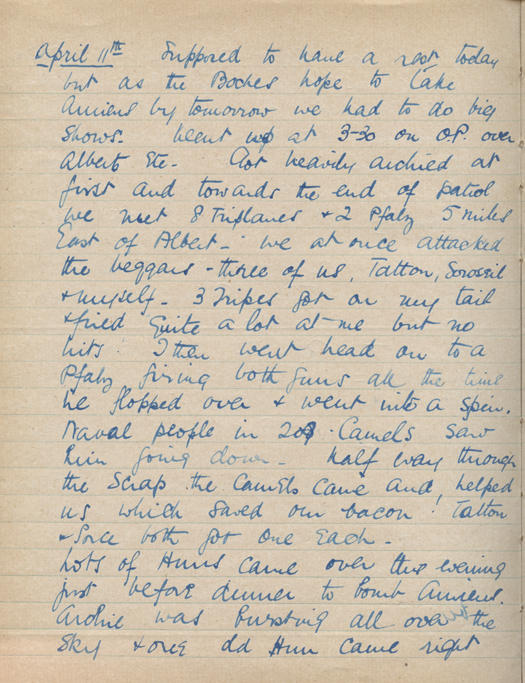 April 11th Supposed to have a rest today
but as the Boches hope to take
Amiens by tomorrow we had to do big
shows. Went up at 3-30 on O.P. over
Albert Etc - Got heavily archied at
first and towards the end of patrol
we met 8 Triplanes + 2 Pfalz 5 miles
East of Albert - we at once attacked
the beggars - three of us, Tatton,
+ myself - 3 Tripes got on my tail
+ fired quite a lot at me but no
hits. I then went head on to a
Pfalz firing both guns all the time
he flopped over + went into a spin.
Naval people in 209 Camels saw
him going down - half way through
the scrap the Camels came and, helped
us which saved our bacon. Tatton
+ both got one each -
Lots of Huns came over this evening
just before dinner to bomb Amiens.
Archie was bursting all over the
sky + one old Hun came right